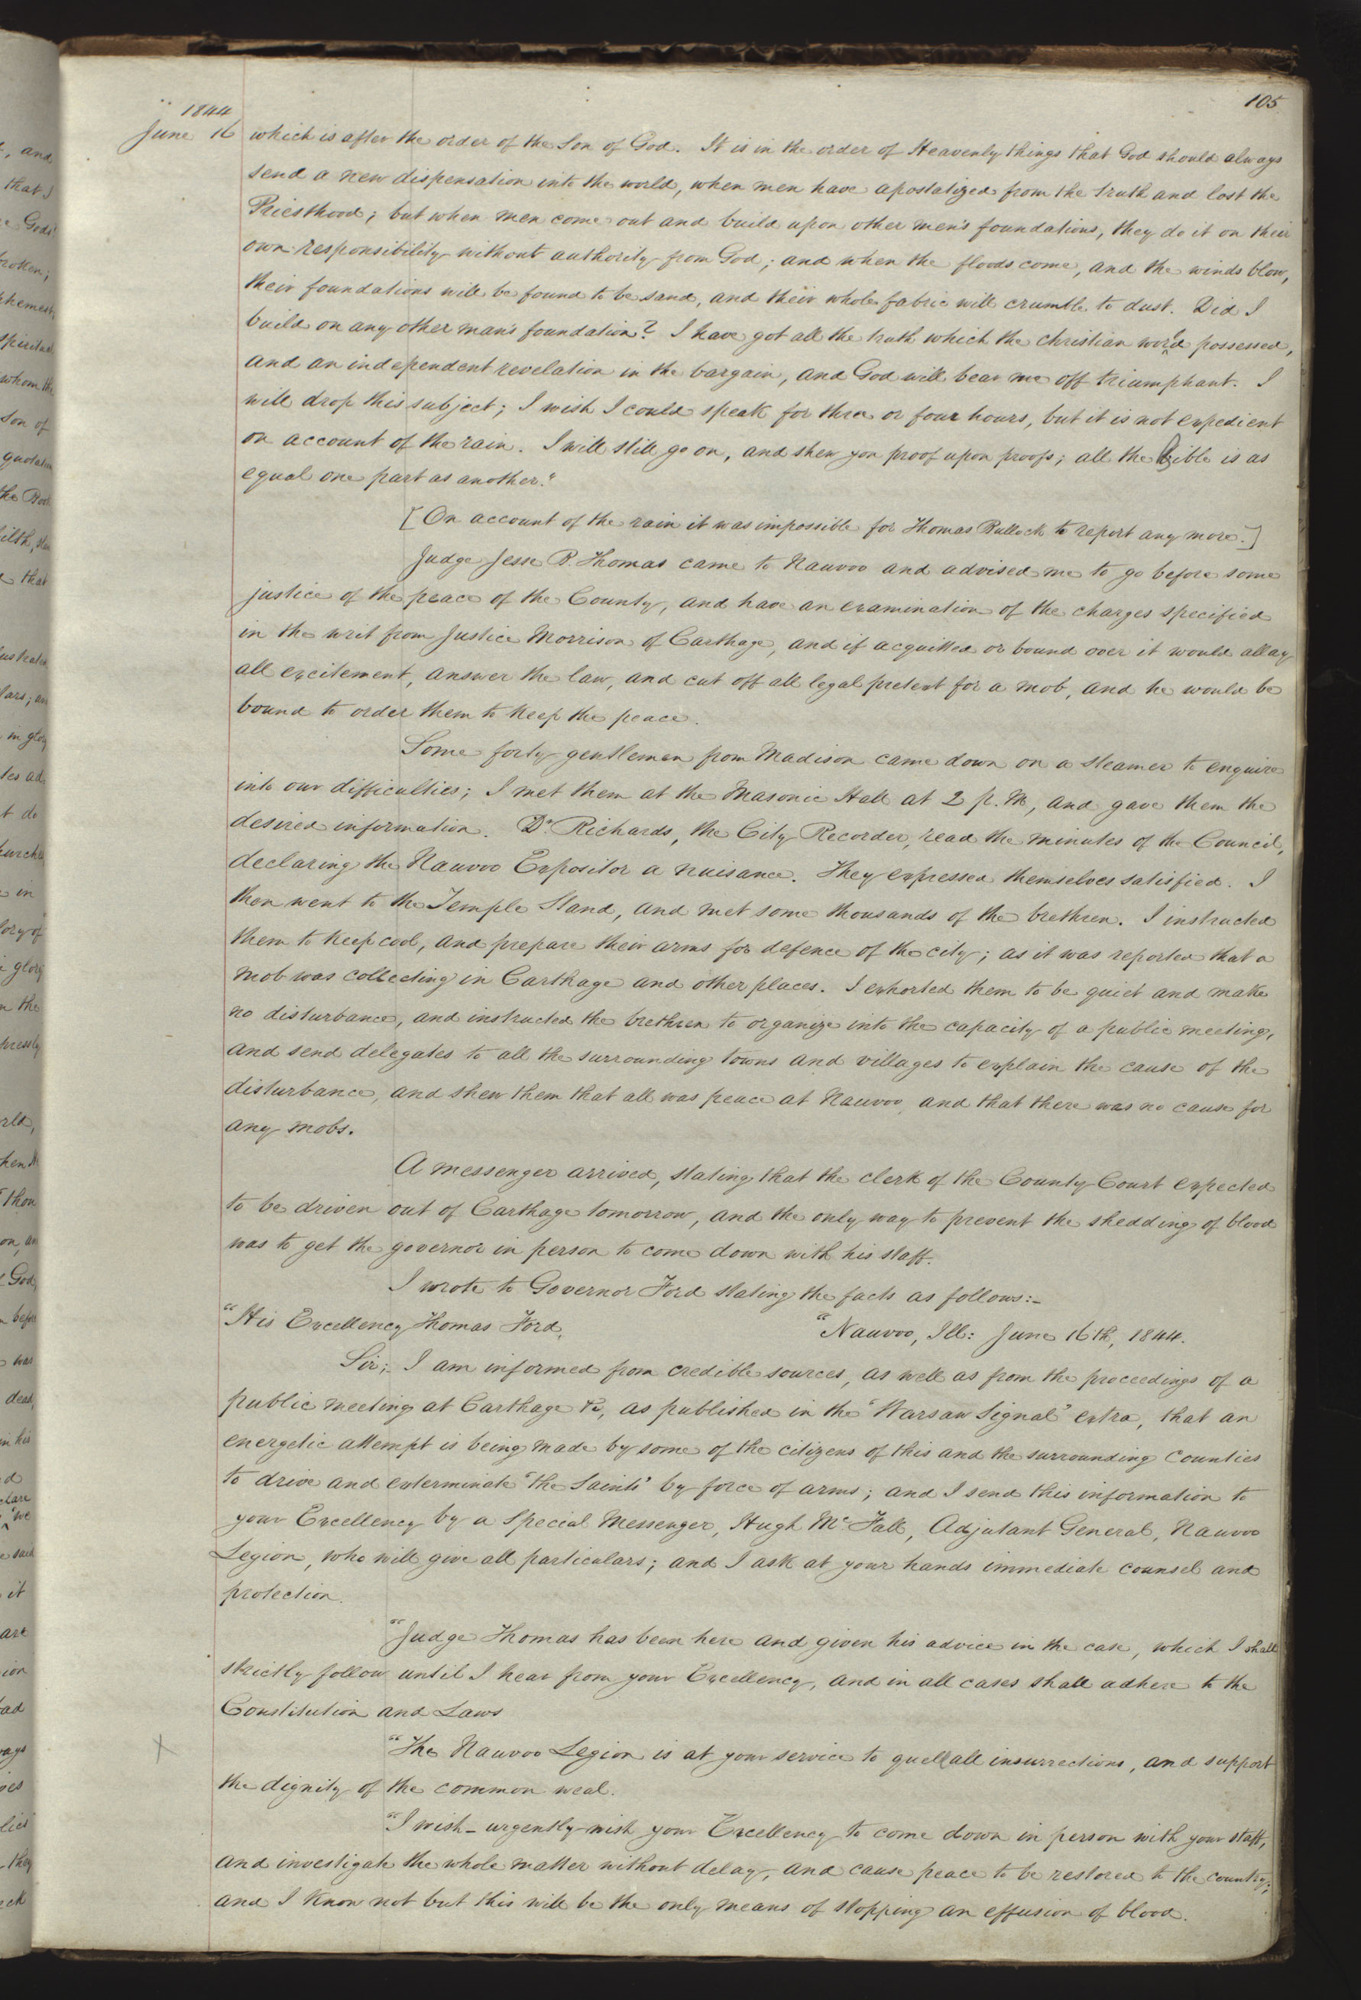 105
1844
June 16 which is after the order of the Son of God. It is in the order of Heavenly things that God should always
send a new dispensation into the world, when men have apostatized from the truth and lost the
Priesthood; but when men come out and build upon other men's foundations, they do it on their
own responsibility without authority from God; and when the floods come, and the winds blow,
their foundations will be found to be sand, and their whole fabric will crumble to dust. Did I
build on any other man's foundation? I have got all the truth which the christian world possessed,
and an independent revelation in the bargain, and God will bear me off triumphant. I
will drop this subject; I wish I could speak for three or four hours, but it is not expedient
on account of the rain. I will still go on, and shew you proof upon proofs; all the Bible is as
equal one part as another."
[On account of the rain it was impossible for Thomas Bullock to report any more.]
Judge Jesse B. Thomas came to Nauvoo and advised me to go before some
justice of the peace of the County, and have an examination of the charges specified
in the writ from Justice Morrison of Carthage, and if acquitted or bound over it would allay
all excitement, answer the law, and cut off all legal pretext for a mob, and he would be
bound to order them to keep the peace.
Some forty gentlemen from Madison came down on a steamer to enquire
into our difficulties; I met them at the Masonic Hall at 2 p. M, and gave them the
desired information. Dr Richards, the City Recorder, read the minutes of the Council,
declaring the Nauvoo Expositor a nuisance. They expressed themselves satisfied. I
then went to the Temple Stand, and met some thousands of the brethren. I instructed
them to keep cool, and prepare their arms for defence of the city; as it was reported that a
mob was collecting in Carthage and other places. I exhorted them to be quiet and make
no disturbance, and instructed the brethren to organize into the capacity of a public meeting,
and send delegates to all the surrounding towns and villages to explain the cause of the
disturbance, and shew them that all was peace at Nauvoo, and that there was no cause for
any mobs.
A messenger arrived, stating that the clerk of the County Court expected
to be driven out of Carthage tomorrow, and the only way to prevent the shedding of blood
was to get the governor in person to come down with his staff.
I wrote to Governor Ford stating the facts as follows:—
"Nauvoo, Ill: June 16th, 1844.
"His Excellency Thomas Ford,
Sir;— I am informed from credible sources, as well as from the proceedings of a
public meeting at Carthage &c, as published in the "Warsaw Signal" extra, that an
energetic attempt is being made by some of the citizens of this and the surrounding counties
to drive and exterminate "the Saints" by force of arms; and I send this information to
your Excellency by a Special Messenger, Hugh McFall, Adjutant General, Nauvoo
Legion, who will give all particulars; and I ask at your hands immediate counsel and
protection.
"Judge Thomas has been here and given his advice in the case, which I shall
strictly follow until I hear from your Excellency, and in all cases shall adhere to the
Constitution and Laws
"The Nauvoo Legion is at your service to quell all insurrections, and support
the dignity of the common weal.
"I wish— urgently wish your Excellency to come down in person with your staff,
and investigate the whole matter without delay, and cause peace to be restored to the country;
and I know not but this will be the only means of stopping an effusion of blood.